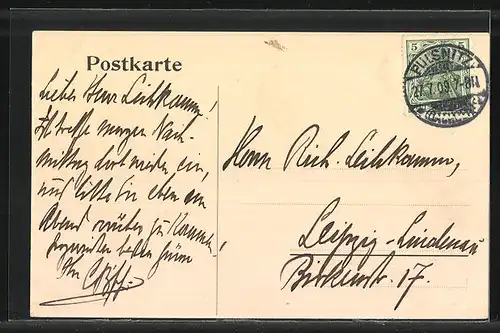 Postkarte
PULSNITZ
27.7.09. 7-8N
5 5
Lieber Herr Leihkamm!
Ich treffe morgen Nach-
mittag dort wieder ein,
und bitte Sie eben am
Abend zu kommen,
besten Grüßen
Ihr
Herrn Rich. Leihkamm,
Leipzig-Lindenau
Birkenstr. 17.